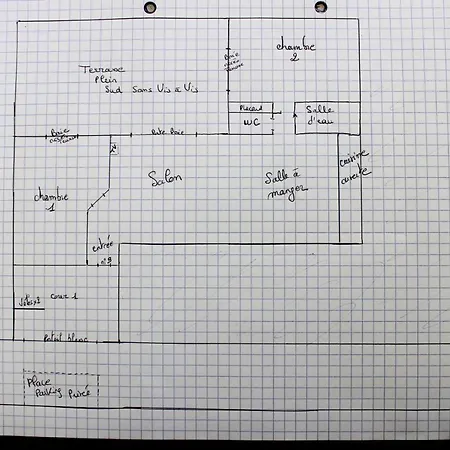 chambre
2
Terrasse
Plein
Sud Sans Vis à Vis
Baie
Placard
WC
Salle
d'eau
Baie
Baie
Salon
Salle à
manger
cuisine
ouverte
chambre
1
entrée
n°2
cour 1
Portail blanc
Place
Parking Privée